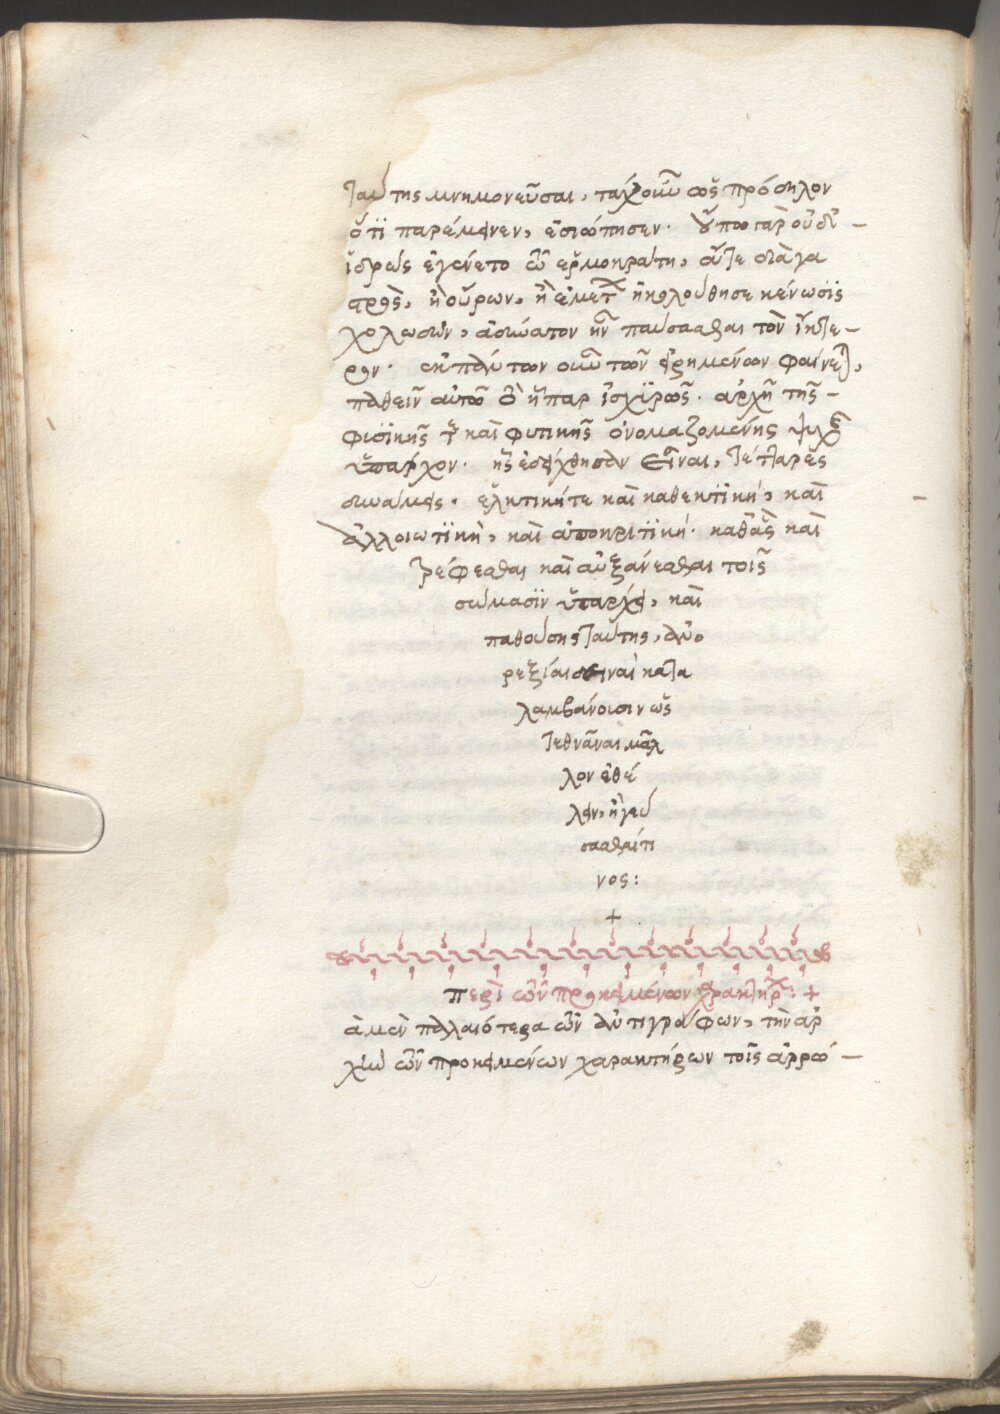 ταύτης μνημονεῦσαι, τάχ οὖν ὡς πρόδηλον
ὅτι παρέμεινεν, ἐσιώπησεν. οὔπω γὰρ οὐδ᾽ –
ἱδρὼς ἐγένετο τῷ ἑρμοκράτῃ, οὔτε διὰ γα
στρὸς, ἢ οὔρων, ἢ ἐμέτων ἠκολούθησε κένωσις
χολωδῶν, ἀδύνατον ἦν παύσασθαι τὸν ἴκτε –
ρον. ἐκ πάντων οὖν τῶν εἰρημένων φαίνεται,
παθεῖν αὐτῷ τὸ ἧπαρ ἰσχυρῶς. ἀρχὴ τῆς –
φυσικῆς τε καὶ φυτικῆς ὀνομαζομένης ψυχῆς
ὑπάρχον. ἧς ἐδείχθησαν εἶναι, τέτταρες
δυνάμεις. ἑλκτική τε καὶ καθεκτϊκή, καὶ
ἀλλοιωτϊκὴ, καὶ ἀποκριτϊκή. καθ᾽ ἃς καὶ
τρέφεσθαι καὶ αὐξάνεσθαι τοῖς
σώμασϊν ὑπάρχει, καὶ
παθούσης ταύτης, ἀνο
ρεξίαι δειναὶ κατα
λαμβάνουσιν ὡς
τεθνᾶναι μᾶλ
λον ἐθέ
λειν, ἢ γεύ
σασθαί τι
νος:
+
περὶ τῶν προκειμένων χαρακτήρων: +
ὰ μὲν παλαιότερα τῶν ἀντιγράφων, τὴν ἀρ
χὴν τῶν προκειμένων χαρακτήρων τοῖς ἀρρώ –